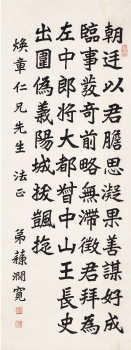 朝廷以君膽思凝果善謀好成
臨事發奇前略無滯徴君拜為
左中郎將大都督中山王長史
出圍偽義陽城拔颯旋
煥章仁兄先生 法正
弟穟瀾寬